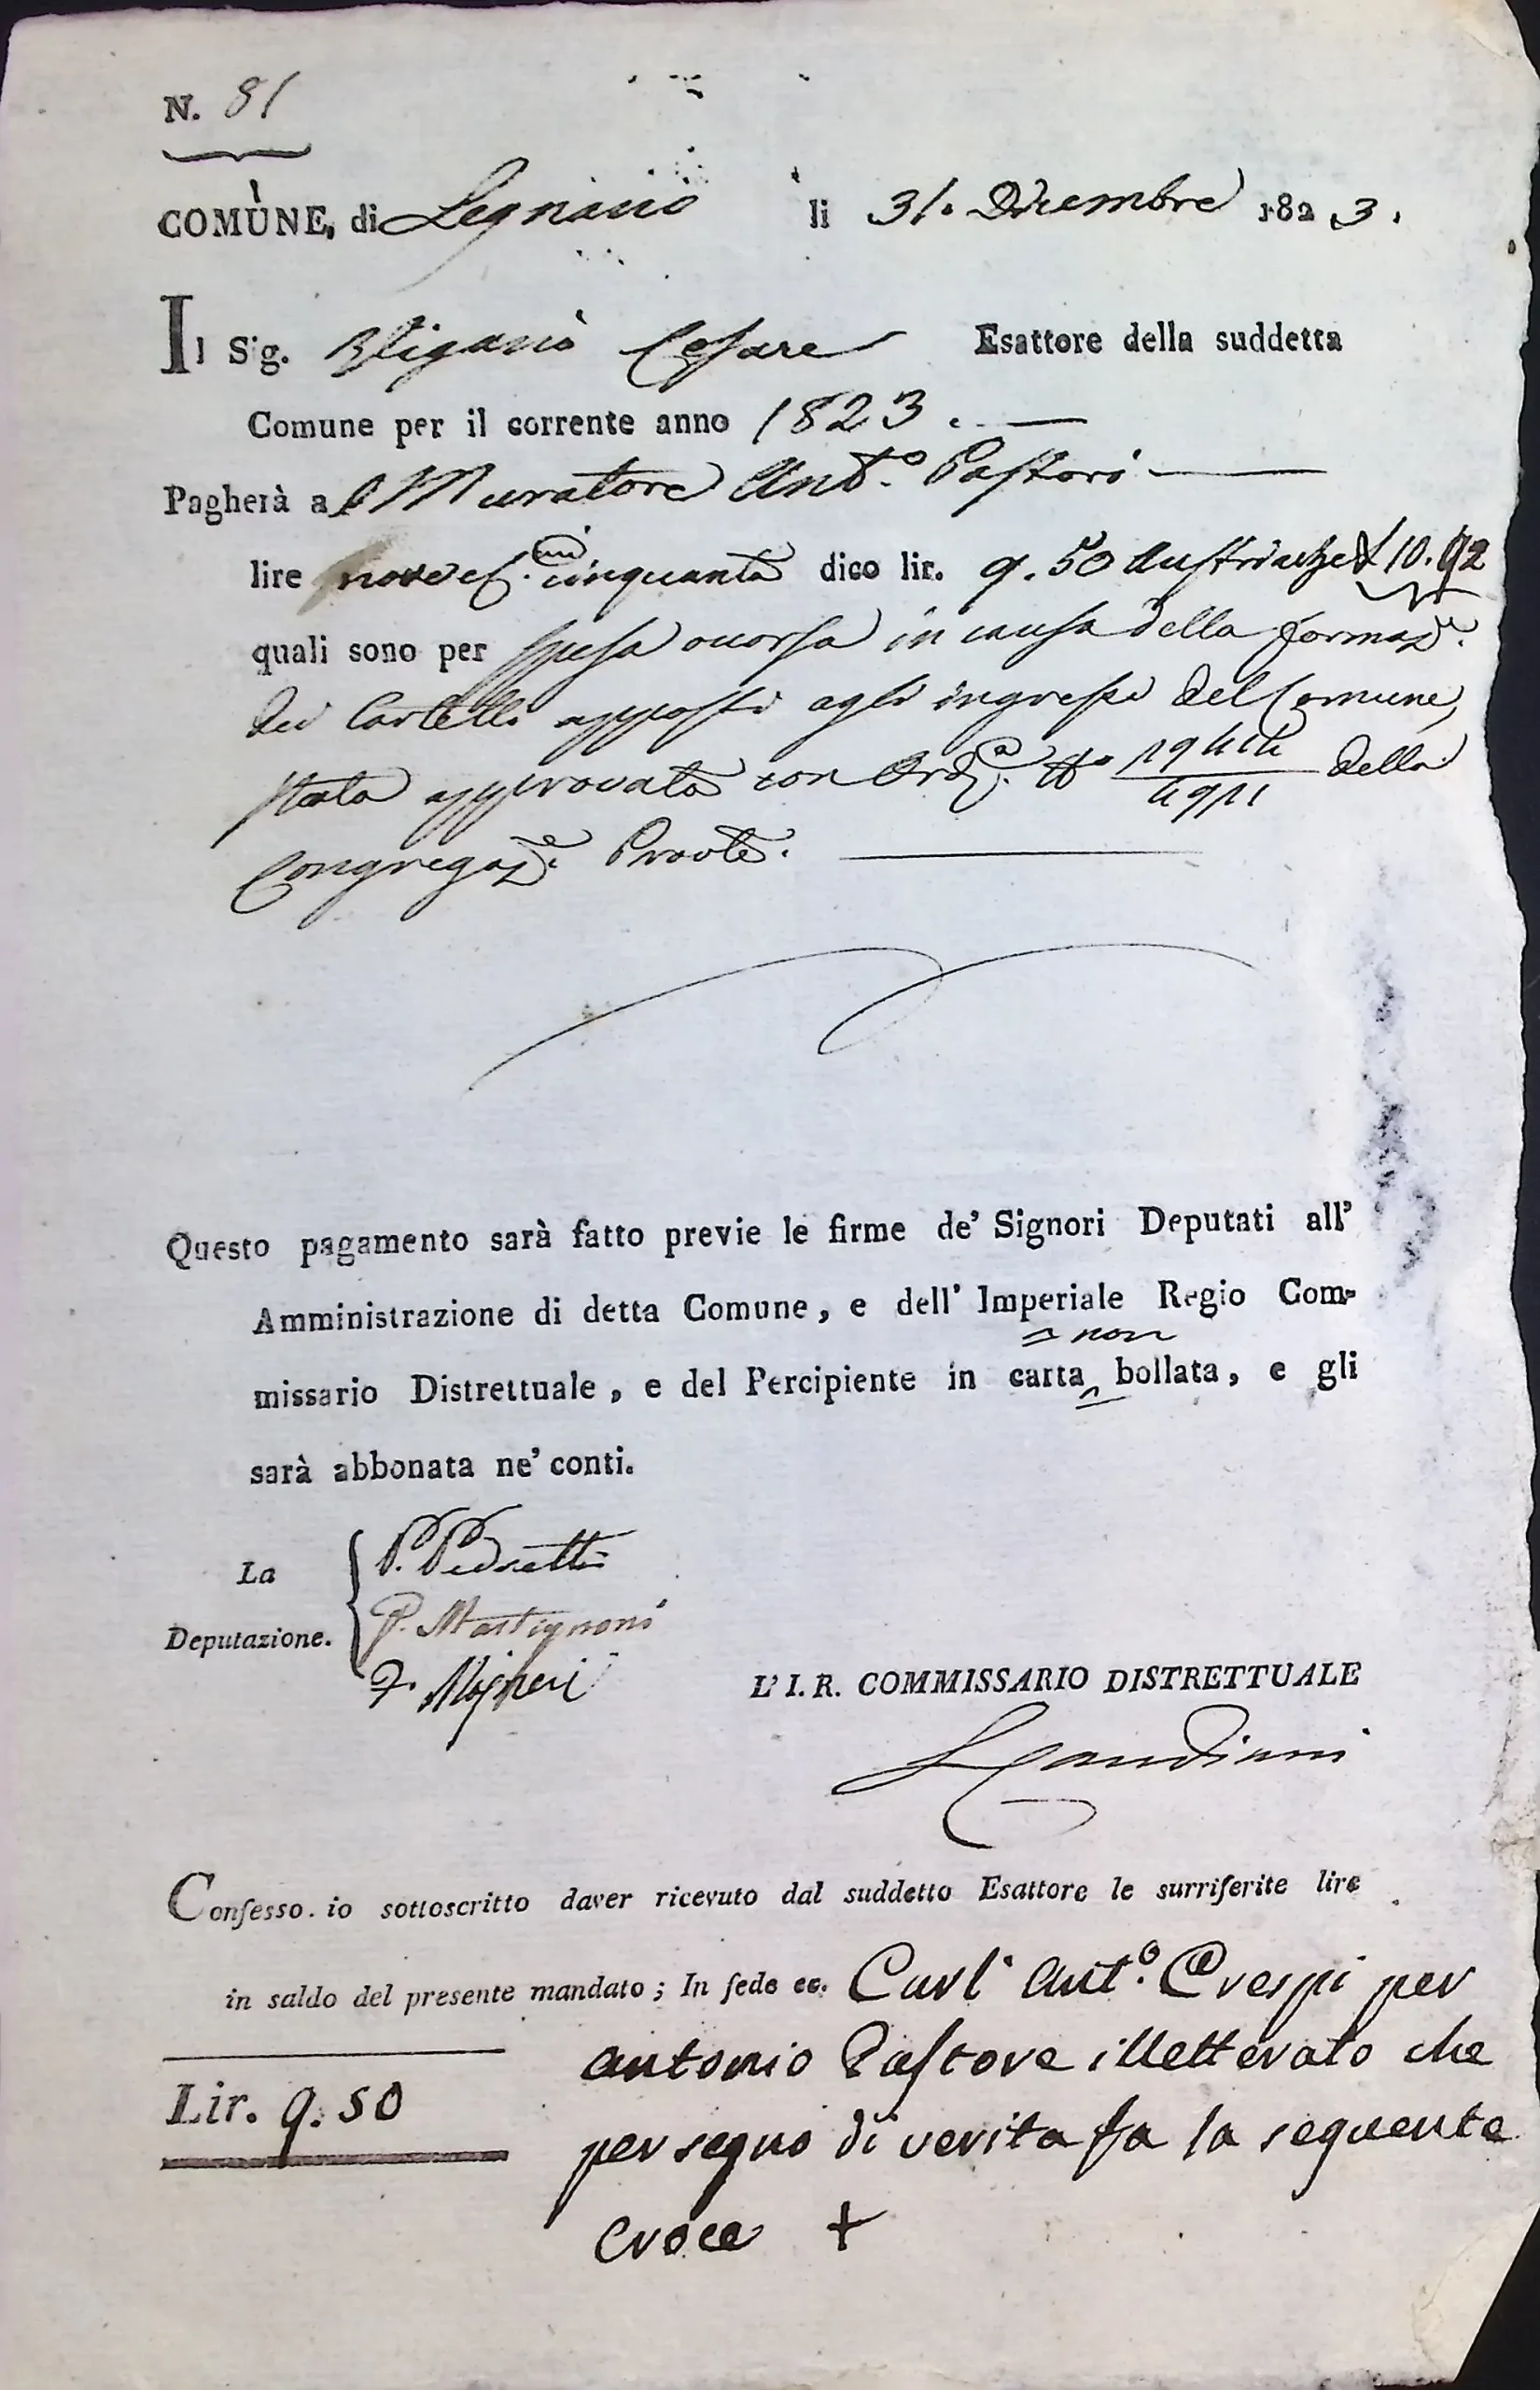 N. 81
COMUNE, di Legnano li 31. Dicembre 1823.
Il Sig. Cesare Esattore della suddetta
Comune per il corrente anno 1823.
Pagherà al Muratore Ant.º Pastori
lire nove e C.mi cinquanta dico lir. 9.50 Austriache
quali sono per spesa occorsa in causa della formaz.e
dei Cartelli apposti agli ingressi del Comune,
stata approvata con Ord.a N.º della
Congregaz.e Provle.
Questo pagamento sarà fatto previe le firme de' Signori Deputati all'
Amministrazione di detta Comune, e dell' Imperiale Regio Com-
= non
missario Distrettuale, e del Percipiente in carta bollata, e gli
sarà abbonata ne' conti.
La
Deputazione.
P. Pedretti
P. Martignoni
L' I. R. COMMISSARIO DISTRETTUALE
Confesso. io sottoscritto daver ricevuto dal suddetto Esattore le surriferite lire
in saldo del presente mandato; In fede ec. Carl' Ant.º Crespi per
antonio Pastore illetterato che
per segno di verita fa la seguente
Lir. 9.50
croce +